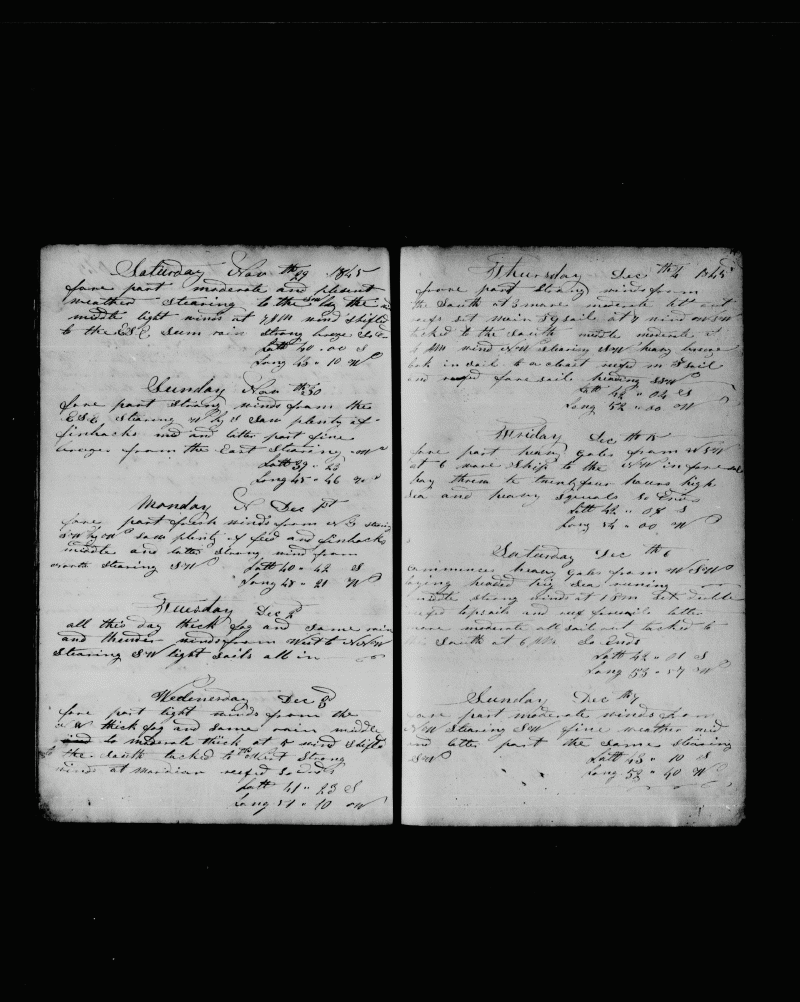 Saturday Nov 29th 1845
fore part moderate and plesent
weather Stearing to the SW by the
middle light winds at 7 AM wind shifted
to the ESE Sum rain strong breeze So E
Latt 40 " 00 S
Long 43 " 10 W
Sunday Nov th30
fore part Strong winds from the
ESE Stearing W by S Saw plenty of
finbacks mid and latter part fine
breezes from the East Stearing W
Latt 39 " 23
Long 45 " 46
Monday Dec 1st
fore part fresh winds from N E stearing
SW by W saw plenty of feed and finbacks
middle and latter strong wind from
north Stearing SW Latt 40 " 42 S
Long 48 " 21 W
Tuesday Dec 2
all this day thick fog and some rain
and thunder winds from West to NNW
Stearing SW light Sails all in
Wednesday Dec 3
fore part light winds from the
thick fog and some rain middle
to moderate thick at 8 wind Shifts
to the South tacked to the West Strong
winds at Meridian reefed So Ends
Latt 41 " 23 S
Long 51 " 10 W
Thursday Dec th4 1845
fore part Strong winds from
the South at 3 more moderate let out
reefs set main at 7 wind WSW
tacked to the South middle moderate at
PM wind NW Stearing SW heavy breeze
took in sail to a close reefd m T sail
and reefed fore sail heading SSW
Latt 42 " 04 S
Long 52 " 30 W
Friday Dec th5
fore part heavy gales from WSW
at 6 ware Ship to the NW in fore sail
lay threw to twentyfour hours high
Sea and heavy Squals So Ends
Latt 42 " 08 S
Long 54 " 00 W
Saturday Dec th6
commences heavy gales from WSW
laying headed big Sea runing
middle strong winds at 1 AM Set double
reefed topsails and reef foresail latter
more moderate all sail out tacked to
the South at 6 PM So Ends
Latt 42 " 01 S
Long 53 " 57 W
Sunday Dec th7
fore part moderate winds from
NW Stearing SW fine weather mid
and latter part the Same Stearing
SW Latt 43 " 10 S
Long 52 " 40 W